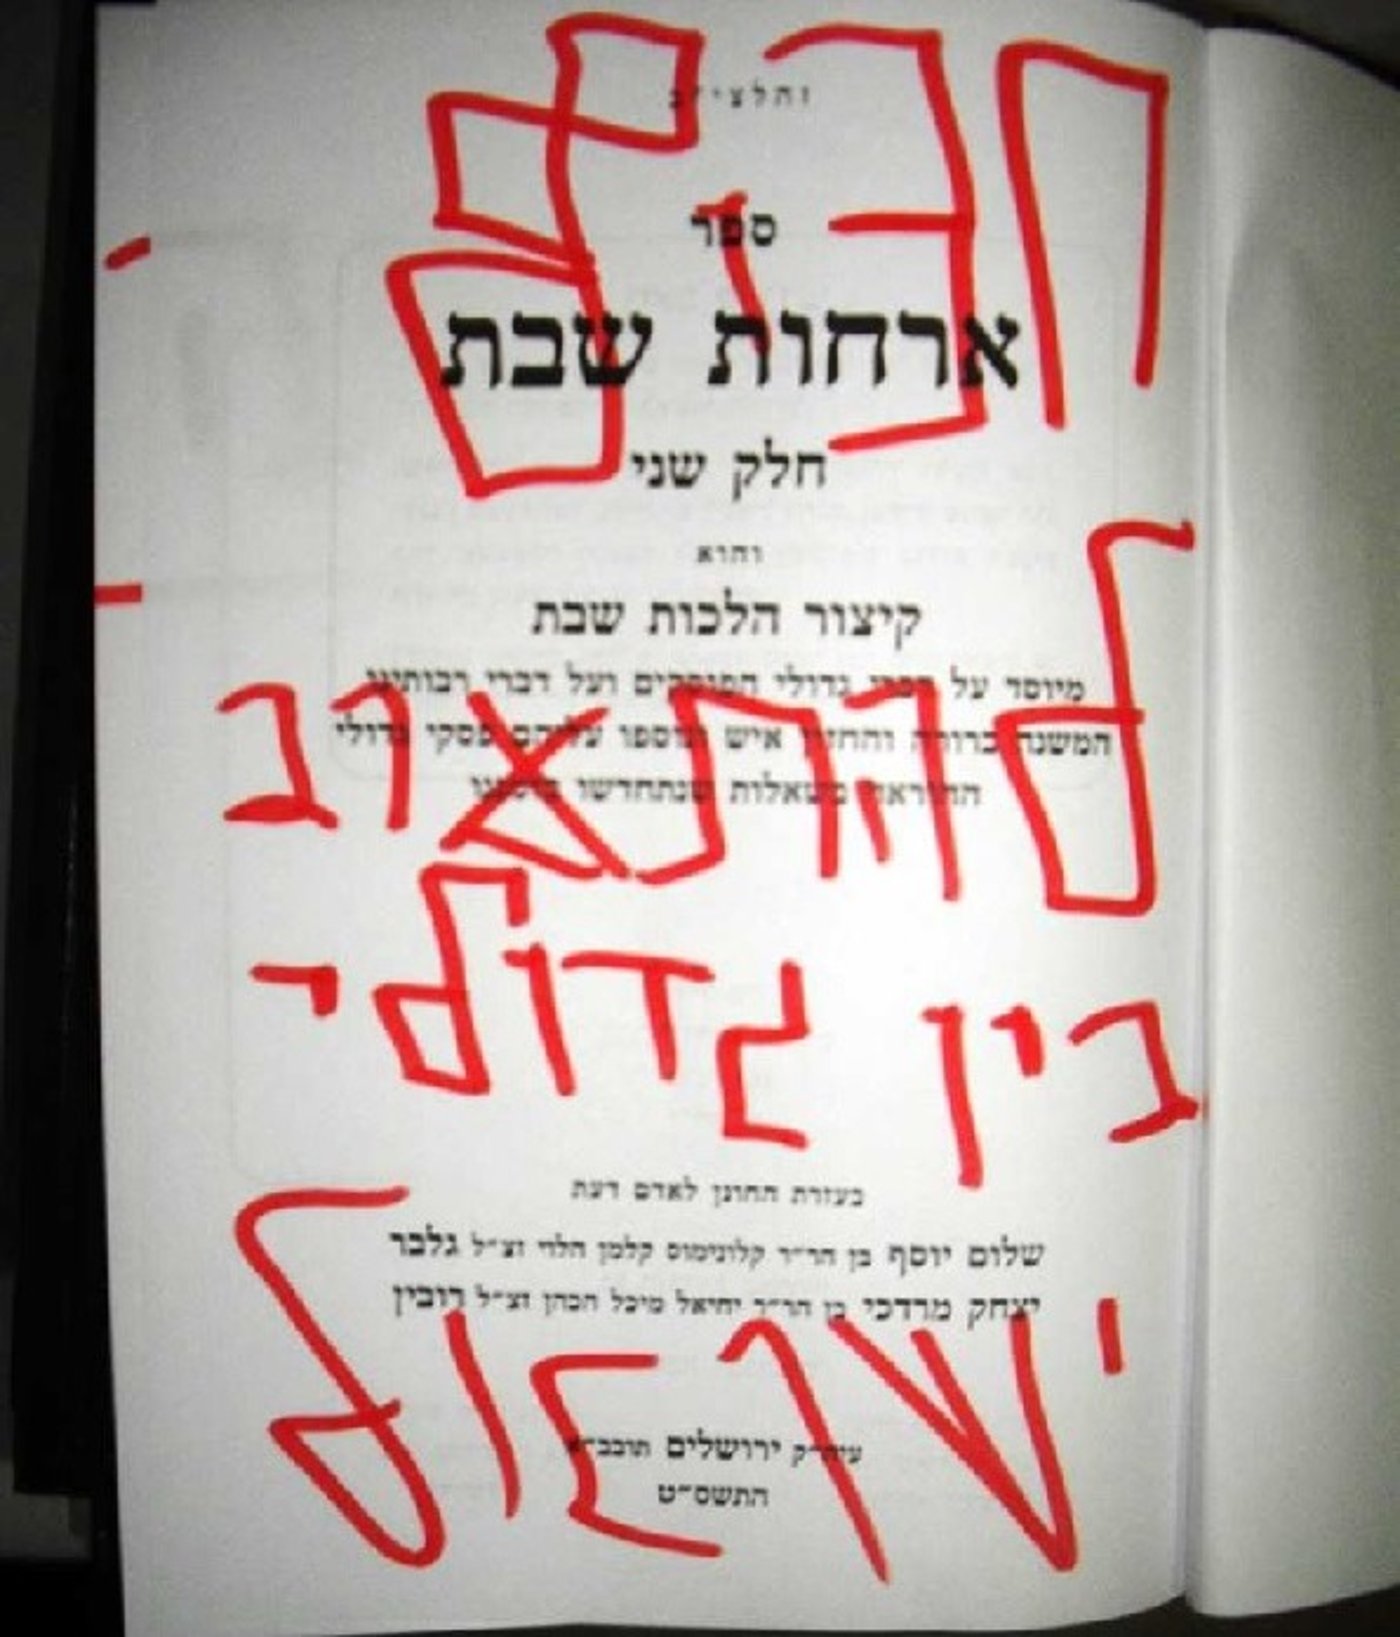 ספר
ארחות שבת
חלק שני
והוא
קיצור הלכות שבת
מיוסד על דברי גדולי הפוסקים ועל דברי רבותינו
המשנה ברורה והחזון איש ונוספו עליהם פסקי גדולי
ההוראה בשאלות שנתחדשו בזמננו
להתארב
בין גדולי
בעזרת החונן לאדם דעת
שלום יוסף בן הר״ר קלונימוס קלמן הלוי זצ״ל גלבר
יצחק מרדכי בן הר״ר יחיאל מיכל הכהן זצ״ל רובין
ישראל
עיה״ק ירושלים תובב״א
התשס״ט